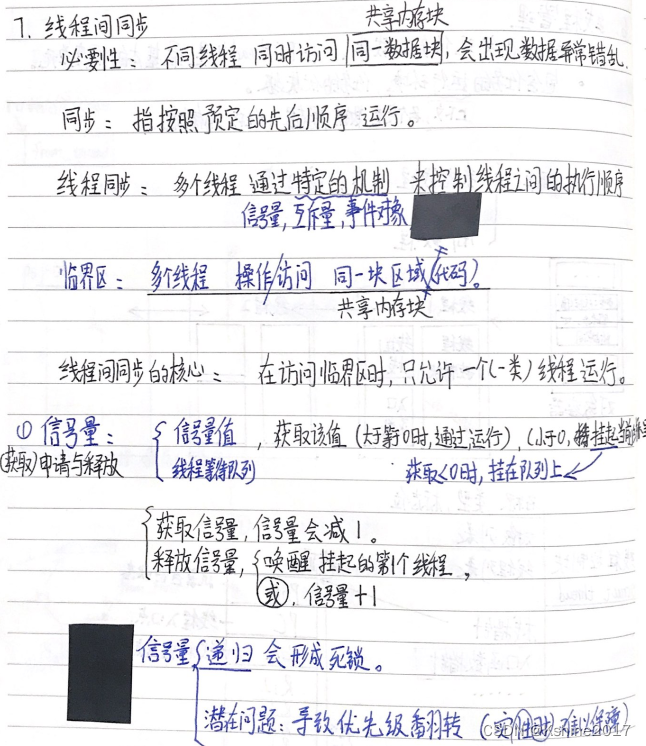 共享内存块
7. 线程间同步
必要性： 不同线程 同时访问 同一数据块，会出现数据异常错乱.
同步： 指按照 预定的先后顺序 运行。
线程同步： 多个线程 通过特定的机制 来控制线程之间的执行顺序
信号量，互斥量，事件对象
临界区： 多个线程 操作/访问 同一块区域(代码)。
共享内存块
线程间同步的核心： 在访问临界区时，只允许一个(一类)线程运行。
① 信号量： 信号量值，获取该值（大于等0时，通过运行），（小于0，挂起
(获取)申请与释放 线程等待队列 获取<0时，挂在队列上
获取信号量，信号量会减1。
释放信号量，唤醒 挂起的第1个线程，
或，信号量+1
信号量 递归 会形成死锁。
潜在问题：导致优先级翻转（实时性 难以保障）
CSDN @Kshine2017